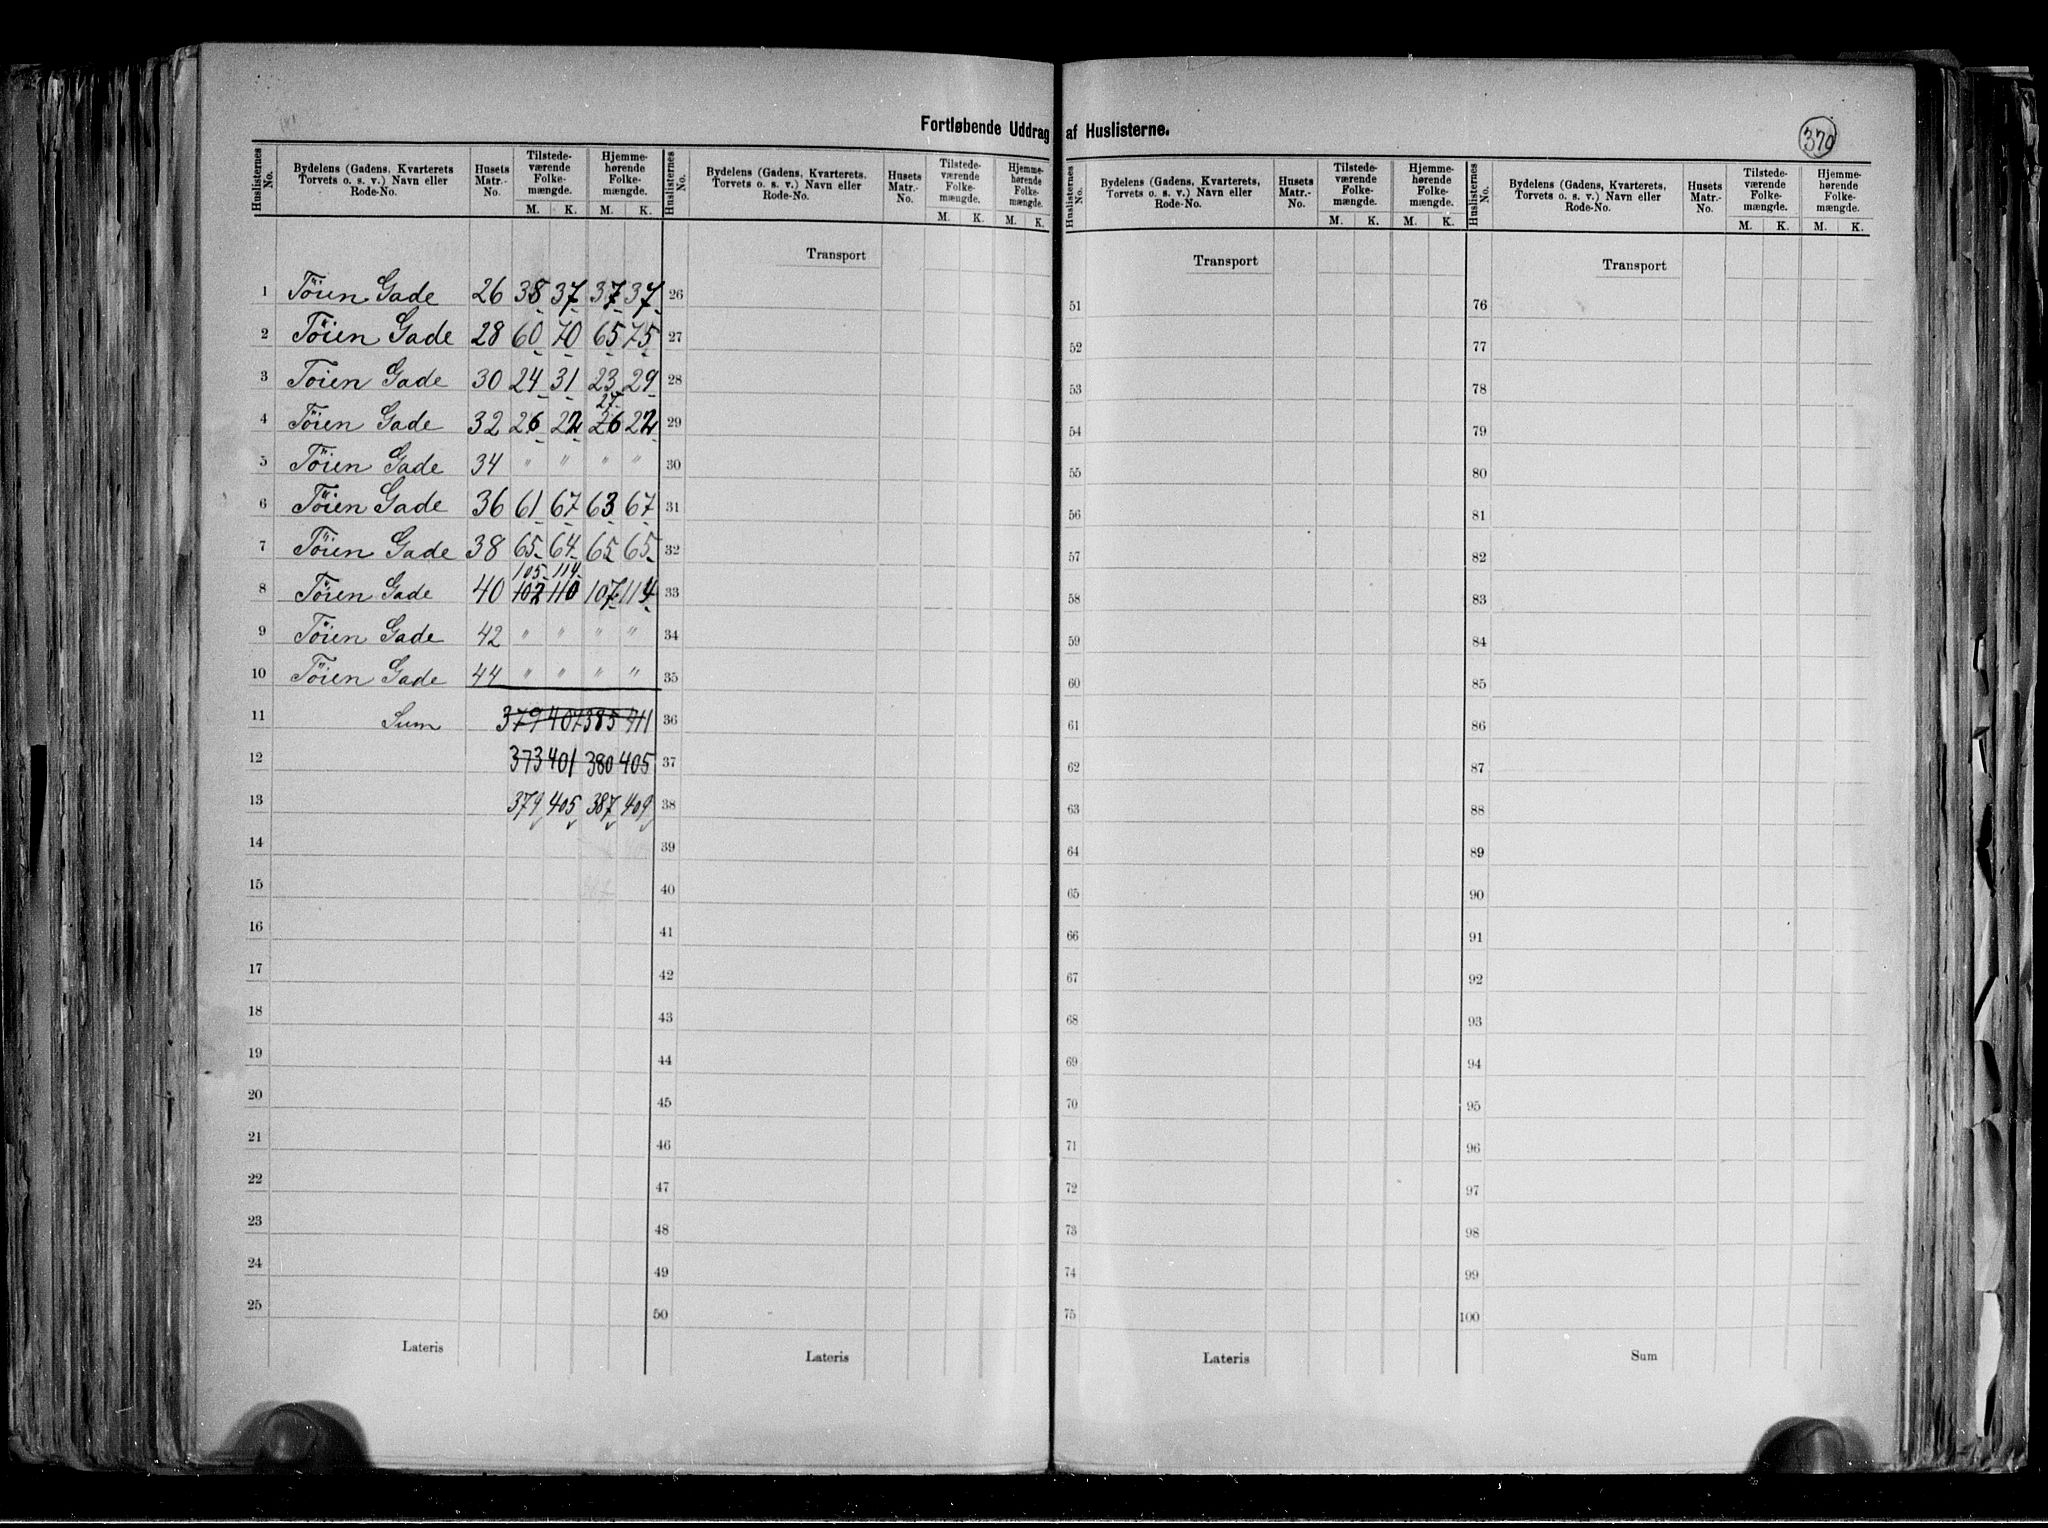 Fortløbende Uddrag af Huslisterne.
379
Huslisternes No. | Bydelens (Gadens, Kvarterets Torvets o. s. v.) Navn eller Rode-No. | Husets Matr.-No. | Tilstedeværende Folkemængde. M. K. | Hjemmehørende Folkemængde. M. K.
1 Töien Gade 26 38 37 37 37
2 Töien Gade 28 60 70 65 75
3 Töien Gade 30 24 31 23 29
27
4 Töien Gade 32 26 22 26 22
5 Töien Gade 34 " " " "
6 Töien Gade 36 61 67 63 67
7 Töien Gade 38 65 64 65 65
105 114
8 Töien Gade 40 102 110 107 114
9 Töien Gade 42 " " " "
10 Töien Gade 44 " " " "
11 Sum 379 407 385 411
12 373 401 380 405
13 379 405 387 409
14
15
16
17
18
19
20
21
22
23
24
25
Lateris
Huslisternes No. | Bydelens (Gadens, Kvarterets, Torvets o. s. v.) Navn eller Rode-No. | Husets Matr.-No. | Tilstedeværende Folkemængde. M. K. | Hjemmehørende Folkemængde. M. K.
Transport
26
27
28
29
30
31
32
33
34
35
36
37
38
39
40
41
42
43
44
45
46
47
48
49
50
Lateris
Huslisternes No. | Bydelens (Gadens, Kvarterets, Torvets o. s. v.) Navn eller Rode-No. | Husets Matr.-No. | Tilstedeværende Folkemængde. M. K. | Hjemmehørende Folkemængde. M. K.
Transport
51
52
53
54
55
56
57
58
59
60
61
62
63
64
65
66
67
68
69
70
71
72
73
74
75
Lateris
Huslisternes No. | Bydelens (Gadens, Kvarterets, Torvets o. s. v.) Navn eller Rode-No. | Husets Matr.-No. | Tilstedeværende Folkemængde. M. K. | Hjemmehørende Folkemængde. M. K.
Transport
76
77
78
79
80
81
82
83
84
85
86
87
88
89
90
91
92
93
94
95
96
97
98
99
100
Sum